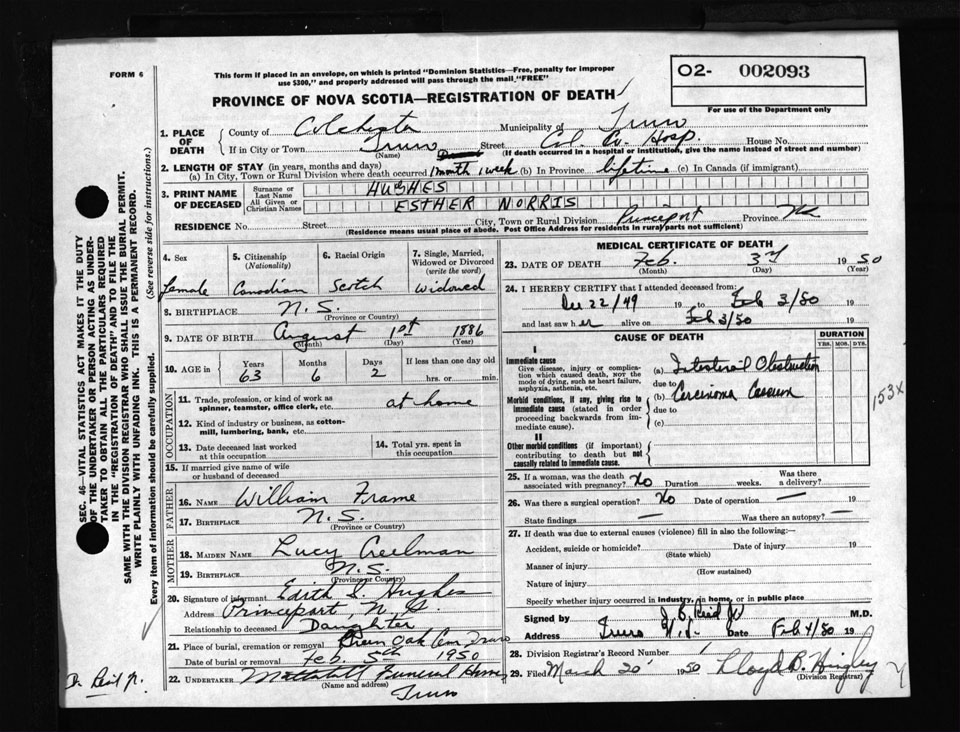 FORM 6
This form if placed in an envelope, on which is printed "Dominion Statistics—Free, penalty for improper
use $300," and properly addressed will pass through the mail "FREE"
O2- 002093
For use of the Department only
PROVINCE OF NOVA SCOTIA—REGISTRATION OF DEATH
1. PLACE OF DEATH
County of Colchester Municipality of Truro
If in City or Town Truro Street Col. Co. Hosp. House No.
(Name) (If death occurred in a hospital or institution, give the name instead of street and number)
2. LENGTH OF STAY (in years, months and days)
(a) In City, Town or Rural Division where death occurred 1 month 1 week (b) In Province lifetime (c) In Canada (if immigrant)
3. PRINT NAME OF DECEASED
Surname or Last Name HUGHES
All Given or Christian Names ESTHER NORRIS
RESIDENCE No. Street City, Town or Rural Division Princeport Province NS
(Residence means usual place of abode. Post Office Address for residents in rural parts not sufficient)
4. Sex 5. Citizenship (Nationality) 6. Racial Origin 7. Single, Married, Widowed or Divorced (write the word)
female Canadian Scotch widowed
8. BIRTHPLACE N.S.
(Province or Country)
9. DATE OF BIRTH August 1st 1886
(Month) (Day) (Year)
10. AGE in Years Months Days If less than one day old
63 6 2 hrs. or min.
OCCUPATION
11. Trade, profession or kind of work as at home
spinner, teamster, office clerk, etc.
12. Kind of industry or business, as cotton-
mill, lumbering, bank, etc.
13. Date deceased last worked at this occupation 14. Total yrs. spent in this occupation
15. If married give name of wife
or husband of deceased
FATHER
16. NAME William Frame
17. BIRTHPLACE N.S.
(Province or Country)
MOTHER
18. MAIDEN NAME Lucy Creelman
19. BIRTHPLACE N.S.
(Province or Country)
20. Signature of informant Edith L. Hughes
Address Princeport, N.S.
Relationship to deceased Daughter
21. Place of burial, cremation or removal Green Oak Cem. Truro
Date of burial or removal Feb. 5th 1950
22. UNDERTAKER Mattatall Funeral Home
(Name and address)
Truro
MEDICAL CERTIFICATE OF DEATH
23. DATE OF DEATH Feb. 3rd 1950
(Month) (Day) (Year)
24. I HEREBY CERTIFY that I attended deceased from:
Dec 22/49 19 to Feb 3/50 19
and last saw her alive on Feb 3/50 19
CAUSE OF DEATH DURATION
YRS. MOS. DYS.
I
Immediate cause
Give disease, injury or compli-
cation which caused death, not the
mode of dying, such as heart failure,
asphyxia, asthenia, etc.
(a) Intestinal Obstruction
due to
Morbid conditions, if any, giving rise to
immediate cause (stated in order
proceeding backwards from im-
mediate cause).
(b) Carcinoma Caecum
due to
(c)
153x
II
Other morbid conditions (if important)
contributing to death but not
causally related to immediate cause.
25. If a woman, was the death associated with pregnancy? No Duration weeks. Was there a delivery?
26. Was there a surgical operation? No Date of operation —
State findings — Was there an autopsy? —
27. If death was due to external causes (violence) fill in also the following:
Accident, suicide or homicide? Date of injury 19
(State which)
Manner of injury
(How sustained)
Nature of injury
Specify whether injury occurred in industry, in home, or in public place
Signed by Reid Jr M.D.
Address Truro N.S. Date Feb 4/50 19
28. Division Registrar's Record No. 1
29. Filed March 20 1950 Lloyd B. Hingley
(Division Registrar)
Dr Reid Jr.
SEC. 46—VITAL STATISTICS ACT MAKES IT THE DUTY
OF THE UNDERTAKER OR PERSON ACTING AS UNDER-
TAKER TO OBTAIN ALL THE PARTICULARS REQUIRED
IN THE "REGISTRATION OF DEATH" AND TO FILE THE
SAME WITH THE DIVISION REGISTRAR WHO SHALL ISSUE THE BURIAL PERMIT.
WRITE PLAINLY WITH UNFADING INK. THIS IS A PERMANENT RECORD.
Every item of information should be carefully supplied. (See reverse side for instructions.)